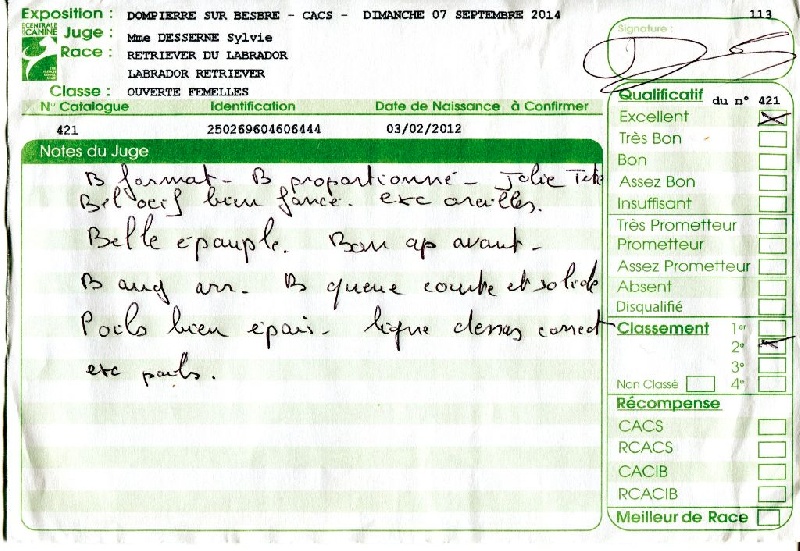 Exposition : DOMPIERRE SUR BESBRE - CACS - DIMANCHE 07 SEPTEMBRE 2014
113
CENTRALE CANINE
Juge : Mme DESSERNE Sylvie
Race : RETRIEVER DU LABRADOR
LABRADOR RETRIEVER
Classe : OUVERTE FEMELLES
Signature :
N° Catalogue Identification Date de Naissance à Confirmer
421 250269604606444 03/02/2012
Notes du Juge
B format - B proportionné - Jolie Tete
Bel oeil bien foncé. exc oreilles.
Belle epaule. Bon ap avant -
B ang arr. B queue courte et solide
Poils bien épais - ligne dessus correct
exc poils.
Qualificatif du n° 421
Excellent
Très Bon
Bon
Assez Bon
Insuffisant
Très Prometteur
Prometteur
Assez Prometteur
Absent
Disqualifié
Classement 1er
2e
3e
Non Classé 4e
Récompense
CACS
RCACS
CACIB
RCACIB
Meilleur de Race